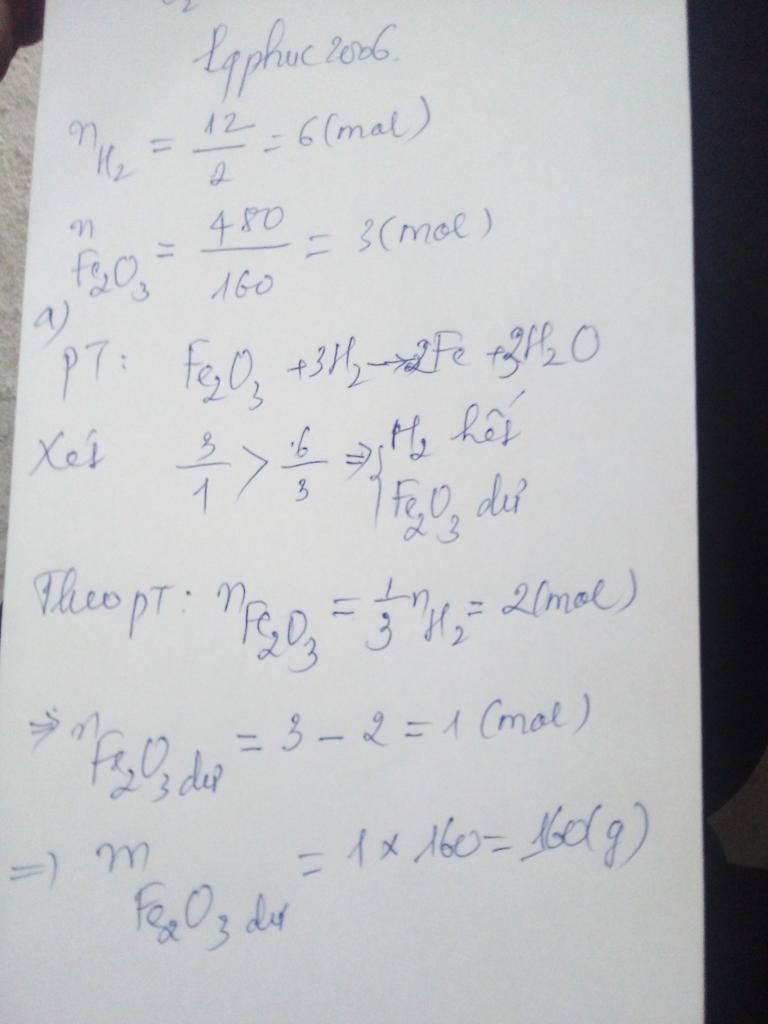 Lqphuc2006.
n H₂ = 12/2 = 6(mol)
n Fe₂O₃ = 480/160 = 3(mol)
a)
PT: Fe₂O₃ + 3H₂ → 2Fe + 3H₂O
Xét 3/1 > 6/3 ⇒ { H₂ hết
Fe₂O₃ dư
Theo pT: n Fe₂O₃ = 1/3 n H₂ = 2(mol)
⇒ n Fe₂O₃ dư = 3 - 2 = 1 (mol)
=) m Fe₂O₃ dư = 1 x 160 = 160(g)